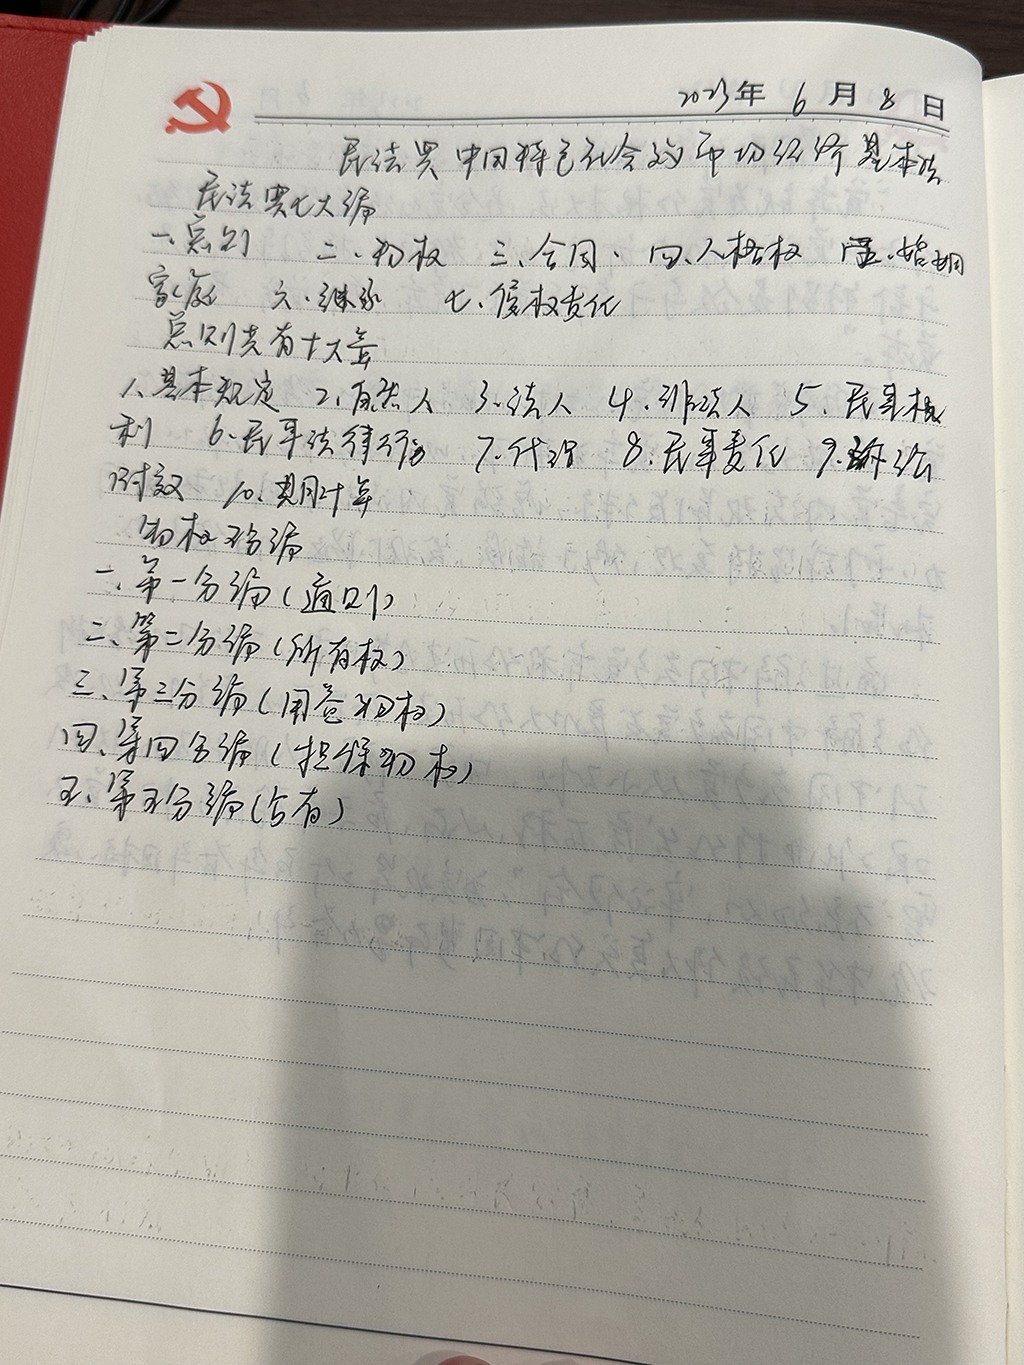 2023年 6月 8日
民法典 中国特色社会主义市场经济基本法
民法典七大编
一、总则 二、物权 三、合同、 四、人格权 五、婚姻
家庭 六、继承 七、侵权责任
总则共有十大章
1、基本规定 2、自然人 3、法人 4、非法人 5、民事权
利 6、民事法律行为 7、代理 8、民事责任 9、诉讼
时效 10、期间计算
物权五分编
一、第一分编(通则)
二、第二分编(所有权)
三、第三分编(用益物权)
四、第四分编(担保物权)
五、第五分编(占有)